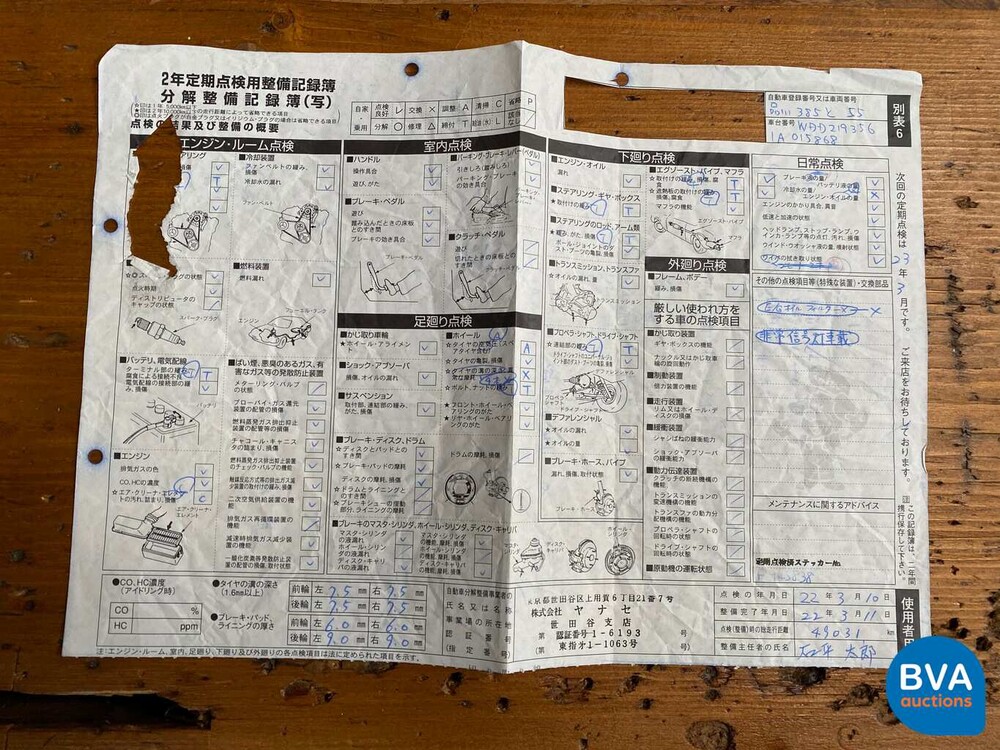 2年定期点検用整備記録簿
分解整備記録簿(写)
点検の結果及び整備の概要
自家・乗用
点検良好 レ 交換 × 調整 A 清掃 C 省略 P
分解 ○ 修理 △ 締付 T 給油(水) L 該当なし
自動車登録番号又は車両番号
品川 385 と 55
車台番号 WDD219356
1A 015868
別表6
エンジン・ルーム点検
冷却装置
ファンベルトの緩み、損傷
冷却水の漏れ
ファン・ベルト
点火時期
ディストリビュータのキャップの状態
スパーク・プラグ
燃料装置
燃料漏れ
エンジン
バッテリ、電気配線
ターミナル部の緩み、腐食による接続不良
電気配線の接続部の緩み、損傷
バッテリ
エンジン
排気ガスの色
CO、HCの濃度
★エア・クリーナ・エレメントの汚れ、詰まり、損傷
エア・クリーナ・エレメント
ばい煙、悪臭のあるガス、有害なガス等の発散防止装置
メターリング・バルブの状態
ブローバイ・ガス還元装置の配管の損傷
燃料蒸発ガス排出抑止装置の配管等の損傷
チャコール・キャニスタの詰まり、損傷
燃料蒸発ガス排出抑止装置のチェック・バルブの機能
触媒反応方式等の排出ガス減少装置の取付けの緩み、損傷
二次空気供給装置の機能
排気ガス再循環装置の機能
減速時排気ガス減少装置の機能
一酸化炭素等発散防止装置の配管の損傷、取付状態
室内点検
ハンドル
操作具合
遊び、がた
ブレーキ・ペダル
遊び
踏み込んだときの床板とのすき間
ブレーキの効き具合
パーキング・ブレーキ・レバー(ペダル)
引きしろ(踏みしろ)
パーキング・ブレーキの効き具合
クラッチ・ペダル
遊び
切れたときの床板とのすき間
足廻り点検
かじ取り車輪
★ホイール・アライメント
ショック・アブソーバ
損傷、オイルの漏れ
サスペンション
取付部、連結部の緩み、がた、損傷
ホイール
★タイヤの亀裂、損傷
★ボルト、ナットの緩み
★フロント・ホイール・ベアリングのがた
★リヤ・ホイール・ベアリングのがた
ブレーキ・ディスク、ドラム
★ディスクとパッドとのすき間
★ブレーキ・パッドの摩耗
ディスクの摩耗、損傷
★ドラムとライニングとのすき間
★ブレーキシューの摺動部分、ライニングの摩耗
ドラムの摩耗、損傷
ブレーキのマスタ・シリンダ、ホイール・シリンダ、ディスク・キャリパ
マスタ・シリンダの液漏れ
ホイール・シリンダの液漏れ
ディスク・キャリパの液漏れ
マスタ・シリンダの機能、摩耗、損傷
ホイール・シリンダの機能、摩耗、損傷
ディスク・キャリパの機能、摩耗、損傷
下廻り点検
エンジン・オイル
漏れ
ステアリング・ギヤ・ボックス
★取付けの緩み
ステアリングのロッド、アーム類
★緩み、がた、損傷
ボール・ジョイントのダスト・ブーツの亀裂、損傷
トランスミッション、トランスファ
★オイルの漏れ、量
プロペラ・シャフト、ドライブ・シャフト
★連結部の緩み
デファレンシャル
★オイルの漏れ
★オイルの量
ブレーキ・ホース、パイプ
漏れ、損傷、取付状態
エグゾースト・パイプ、マフラ
★取付けの緩み、損傷、腐食
★遮熱板の取付けの緩み、損傷、腐食
マフラの機能
エグゾースト・パイプ
マフラ
外廻り点検
フレーム、ボデー
緩み、損傷
厳しい使われ方をする車の点検項目
かじ取り装置
ギヤ・ボックスの機能
ナックル又はかじ取車輪の股回動作
制動装置
倍力装置の機能
走行装置
リム又はホイール・ディスクの損傷
緩衝装置
シャシばねの緩衝能力
ショック・アブソーバの緩衝能力
動力伝達装置
クラッチの断続機構の機能
トランスミッションの変速機構の機能
トランスファの動力分配機構の機能
プロペラ・シャフトの回転時の状態
ドライブ・シャフトの回転時の状態
原動機の運転状態
日常点検
ブレーキ液の量
冷却水の量
バッテリ液の量
エンジン・オイルの量
エンジンのかかり具合、異音
低速と加速の状態
ヘッドランプ、ストップ・ランプ、ウインカ・ランプ等の点灯、汚れ、損傷
ウインド・ウォッシャ液の量、噴射状態
ワイパの拭き取り状態
その他の点検項目等(特殊な装置)・交換部品
非常信号灯基載
メンテナンスに関するアドバイス
定期点検済ステッカーNo.
次回の定期点検は 23 年 3 月です。ご来店をお待ちしております。
この記録簿は、二年間携行保存して下さい。
使用者用
CO、HC濃度
(アイドリング時)
CO %
HC ppm
タイヤの溝の深さ
(1.6mm以上)
前輪 左 7.5 mm 右 7.5 mm
後輪 左 7.5 mm 右 7.5 mm
ブレーキ・パッド、ライニングの厚さ
前輪 左 6.0 mm 右 6.0 mm
後輪 左 9.0 mm 右 9.0 mm
自動車分解整備事業者の
氏名又は名称
事業場の所在
認証番号
(指定番号)
東京都世田谷区上用賀6丁目21番7号
株式会社 ヤナセ
世田谷支店
第 認証番号1-6193 号
第 東指才1-1063号 号
点検の年月日 22年 3月10日
整備完了年月日 22年 3月11日
点検(整備)時の総走行距離 49031 km
整備主任者の氏名
注:エンジン・ルーム、室内、足廻り、下廻り及び外廻りの各点検項目は法に定められた項目を示す。
BVA
auctions